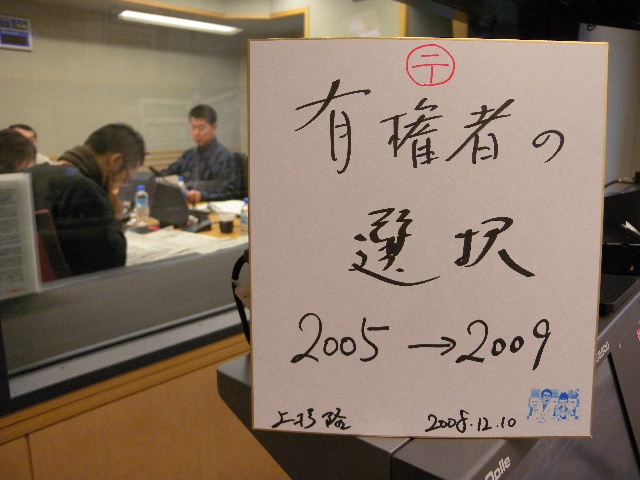 〒
有権者の
選択
2005→2009
上杉隆 2008.12.10